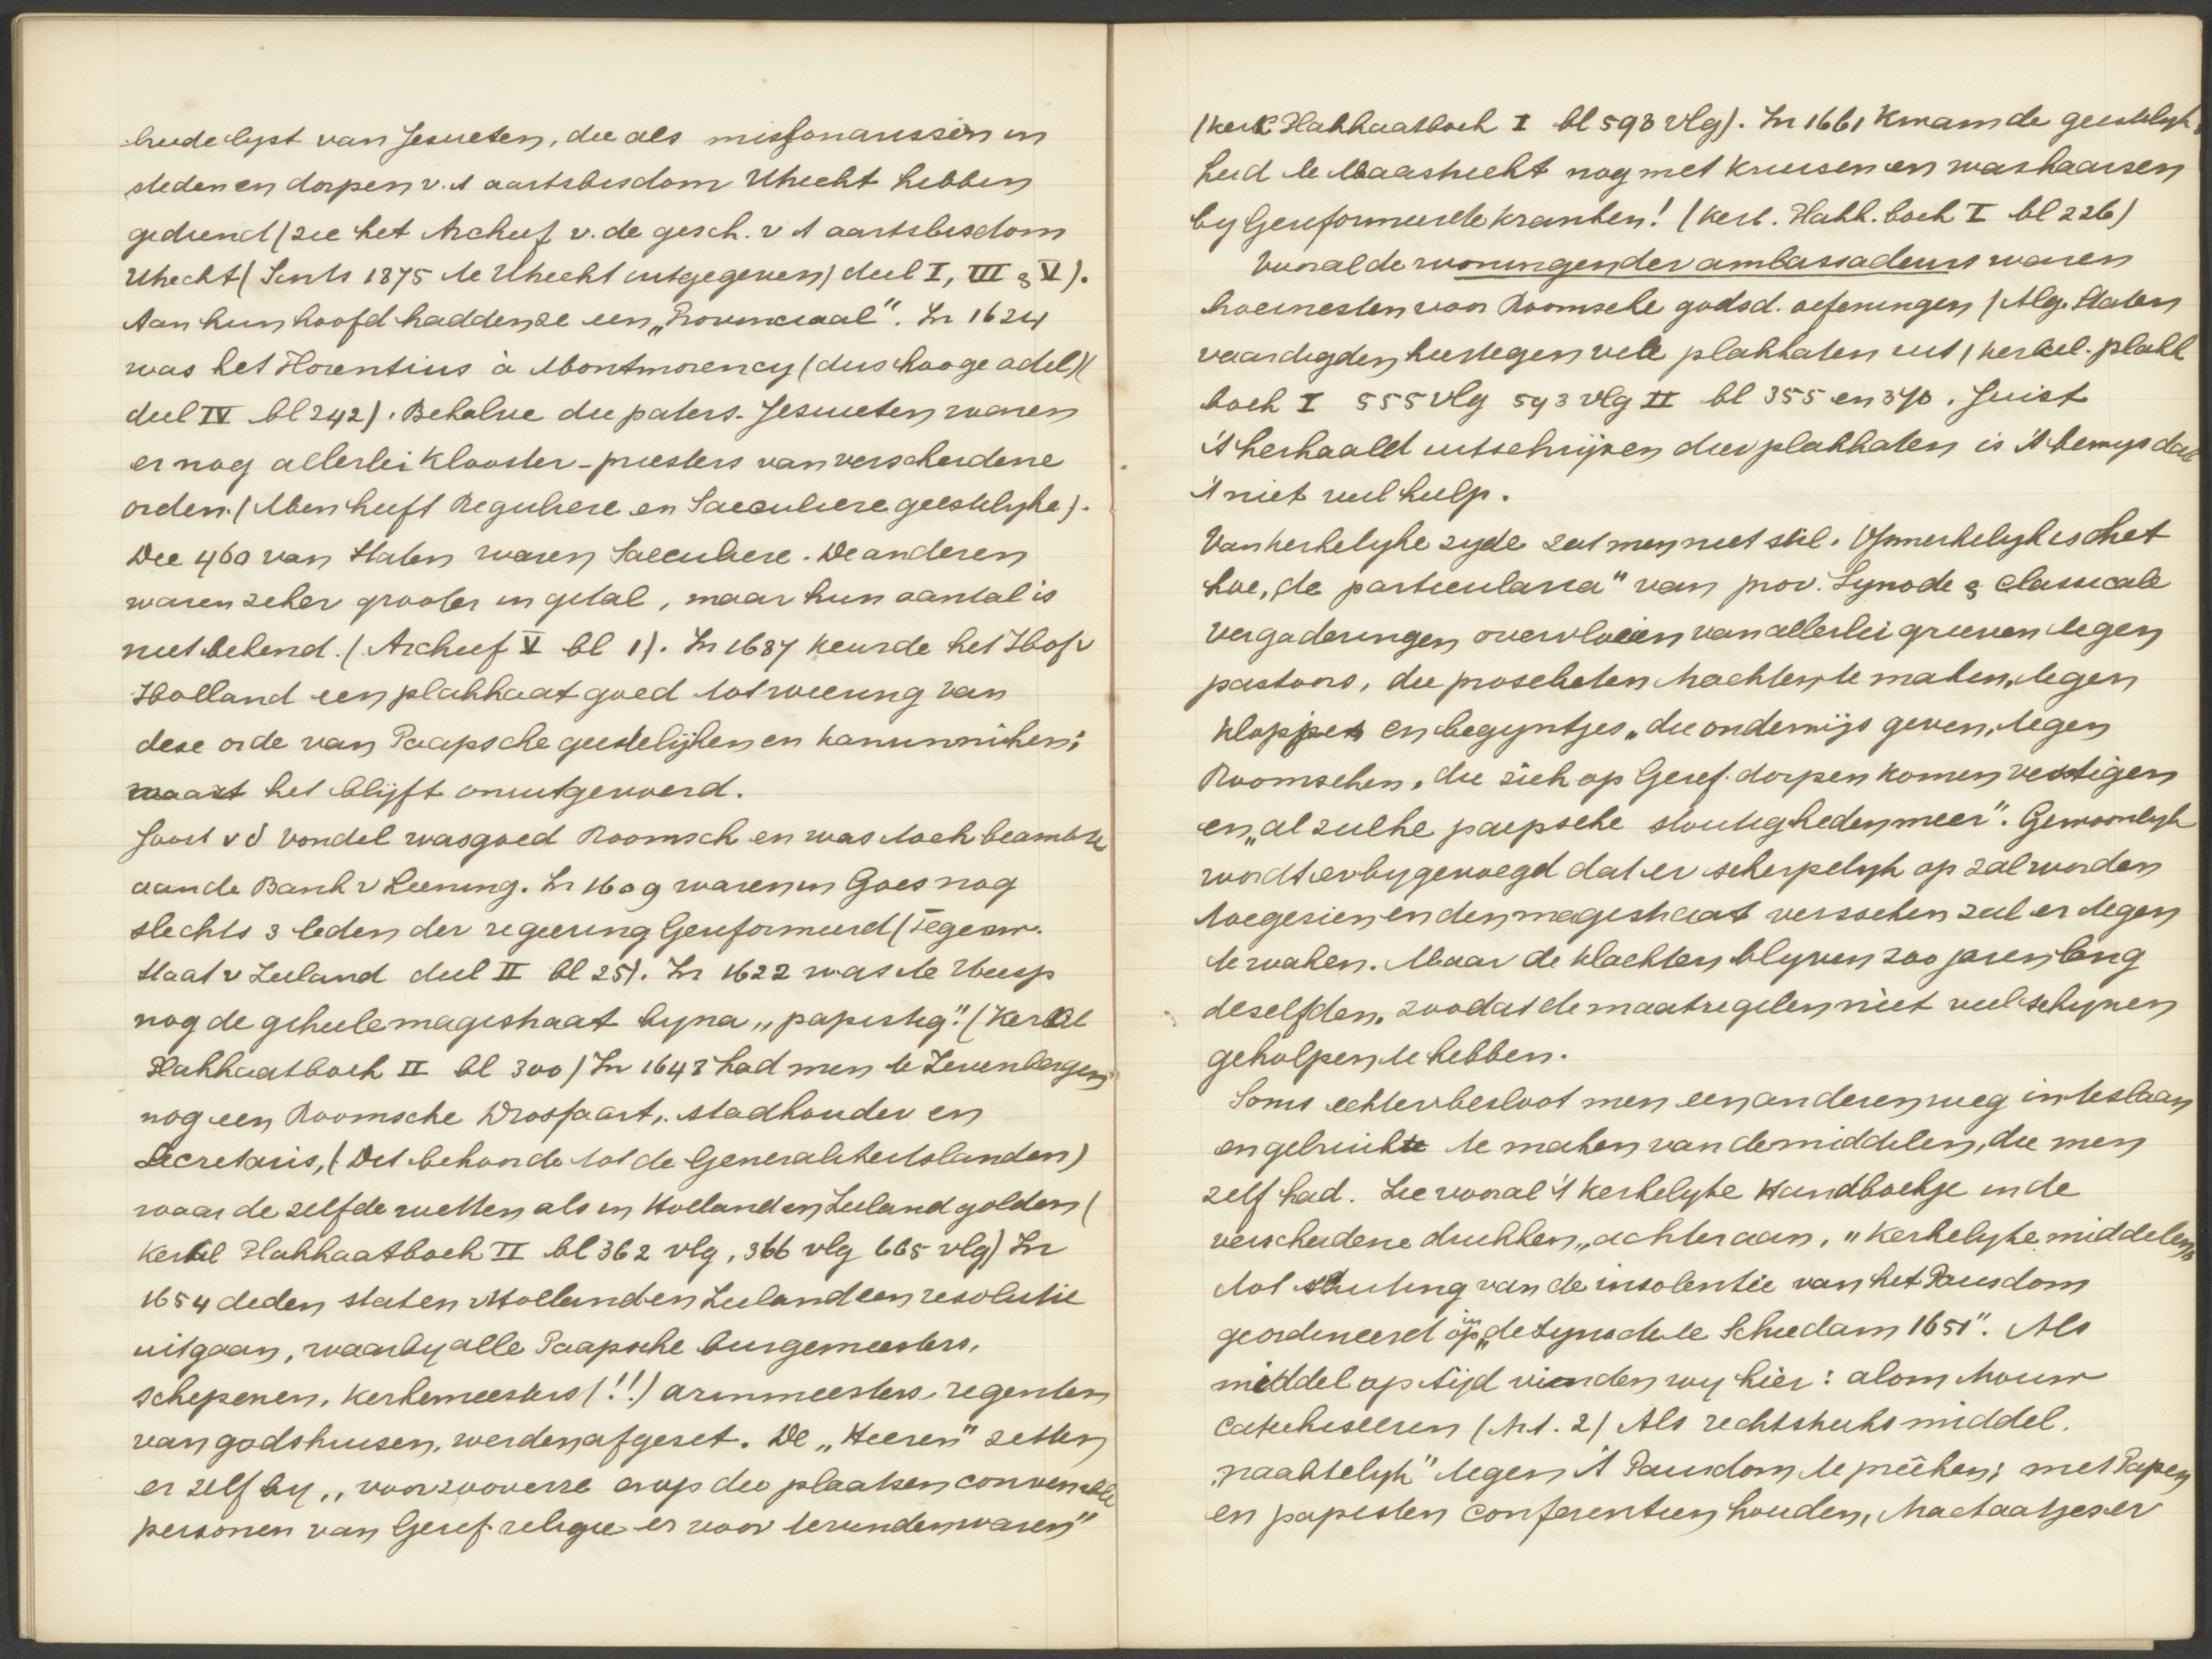 heele lijst van Jesuieten, die als missionarissen in
steden en dorpen v. 't aartsbisdom Utrecht hebben
gediend (zie het Archief v. de gesch. v 't aartsbisdom
Utrecht (Sints 1875 te Utrecht uitgegeven) deel I, III & V).
Aan hun hoofd hadden ze een „Provinciaal". In 1624
was het Florentius à Montmorency (dus hooge adel) (
deel IV bl 242). Behalve die paters-Jesuieten waren
er nog allerlei klooster-priesters van verscheidene
orden. (Men heeft Reguliere en Saeculiere geestelijke).
Die 460 van Staten waren Saeculiere. De anderen
waren zeker grooter in getal, maar hun aantal is
niet bekend. (Archief V bl 1). In 1687 keurde het Hof v
Holland een plakkaat goed tot weering van
deze orde van Paapsche geestelijken en kanunniken;
maar het blijft onuitgevoerd.
Joost v d Vondel was goed Roomsch en was toch beambte
aan de Bank v Leening. In 1609 waren in Goes nog
slechts 3 leden der regeering Gereformeerd (Tegenw.
Staat v Zeeland deel II bl 251. In 1622 was te Weesp
nog de geheele magistraat bijna „papistig". (Kerkel
Plakkaatboek II bl 300) In 1648 had men te Zevenbergen
nog een Roomsche Drossaart, stadhouder en
Secretaris, (Dit behoorde tot de Generaliteitslanden)
waar de zelfde wetten als in Holland en Zeeland golden (
Kerkel Plakkaatboek II bl 362 vlg, 366 vlg 665 vlg) In
1654 deden staten v Holland en Zeeland een resolutie
uitgaan, waarby alle Paapsche burgemeesters,
schepenen, kerkemeesters (!!) armmeesters, regenten
van godshuisen, werden afgezet. De „Heeren" zetten
er zelf by „voorzooverre er op die plaatsen convenable
personen van Geref. religie er voor te vinden waren"
(Kerk. Plakkaatboek I bl 598 vlg). In 1661 kwam de geestelyk
heid te Maastricht nog met kruisen en waskaarsen
by Gereformeerde kranken! (Kerk. Plakk. boek I bl 226)
Vooral de woningen der ambassadeurs waren
broeinesten voor Roomsche godsd. oefeningen (Alg. Staten
vaardigden hiertegen vele plakkaten uit (kerkel. plakk
boek I 555 vlg 593 vlg II bl 355 en 370. Juist
't herhaald uitschrijven dier plakkaten is 't bewys dat
't niet veel hielp.
Van kerkelyke zyde zat men niet stil. Opmerkelyk is het
hoe „de particularia" van prov. Synode & Classicale
vergaderingen overvloeien van allerlei grieven tegen
pastoors, die proselieten trachten te maken, tegen
klopjes en begyntjes „die onderwijs geven, tegen
Roomschen, die zich op Geref. dorpen komen vestigen
en „al zulke paepsche stoutigheden meer". Gewoonlyk
wordt erby gevoegd dat er scherpelyk op zal worden
toegezien en den magistraat verzoeken zal er tegen
te waken. Maar de klachten blyven 200 jaren lang
dezelfden, zoodat de maatregelen niet veel schynen
geholpen te hebben.
Soms echter besloot men een anderen weg in te slaan
en gebruik te maken van de middelen, die men
zelf had. Zie vooral 't Kerkelyke Handboekje in de
verscheidene drukken, „achteraan, "Kerkelyke middelen
tot stuiting van de insolentie van het Pausdom
geordineerd op in „de Synode te Schiedam 1651". Als
middel op tijd vinden wy hier: alom trouw
catechiseeren (Art. 2) Als rechtstreeks middel.
„naaktelyk" tegen 't Pausdom te prêeken; met Papen
en papisten conferentien houden, tractaatjes er